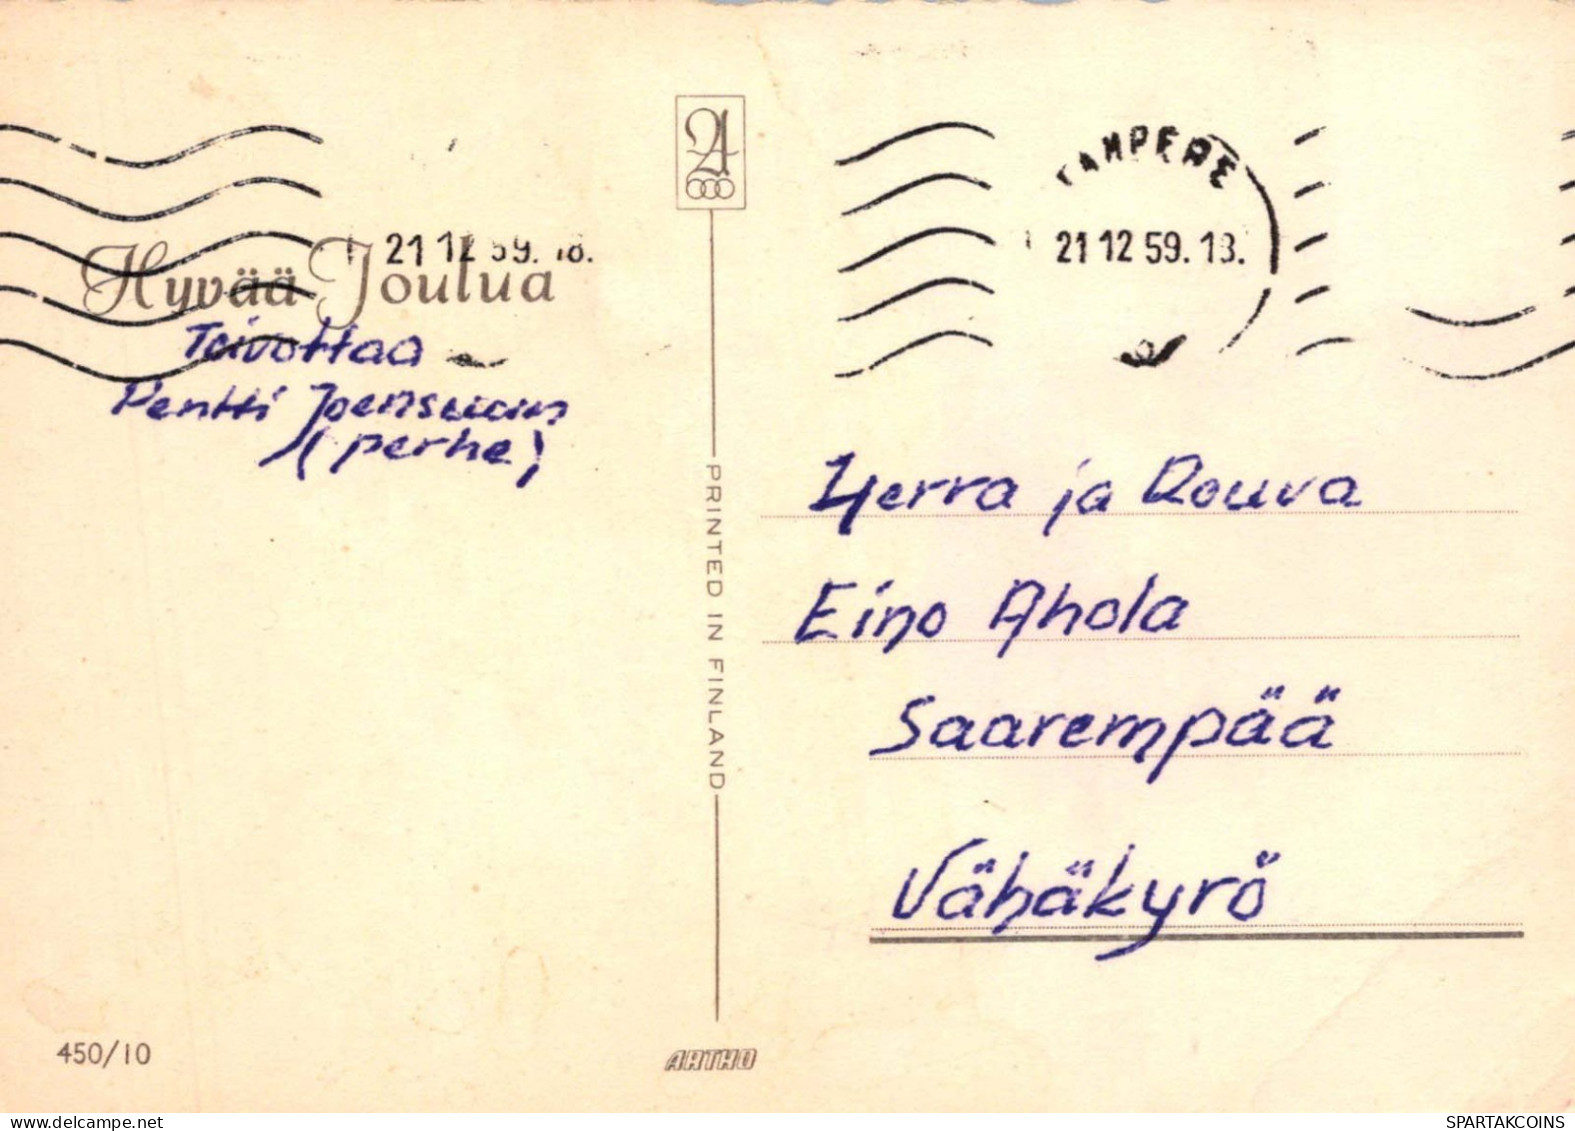 TAMPERE
21 12 59. 18.
21 12 59. 18.
Hyvää Joulua
Toivottaa
Pentti Joensuun
(perhe)
PRINTED IN FINLAND
Herra ja Rouva
Eino Ahola
Saarempää
Vähäkyrö
450/10
ARTKO
delcampe.net
SPARTAKCOINS